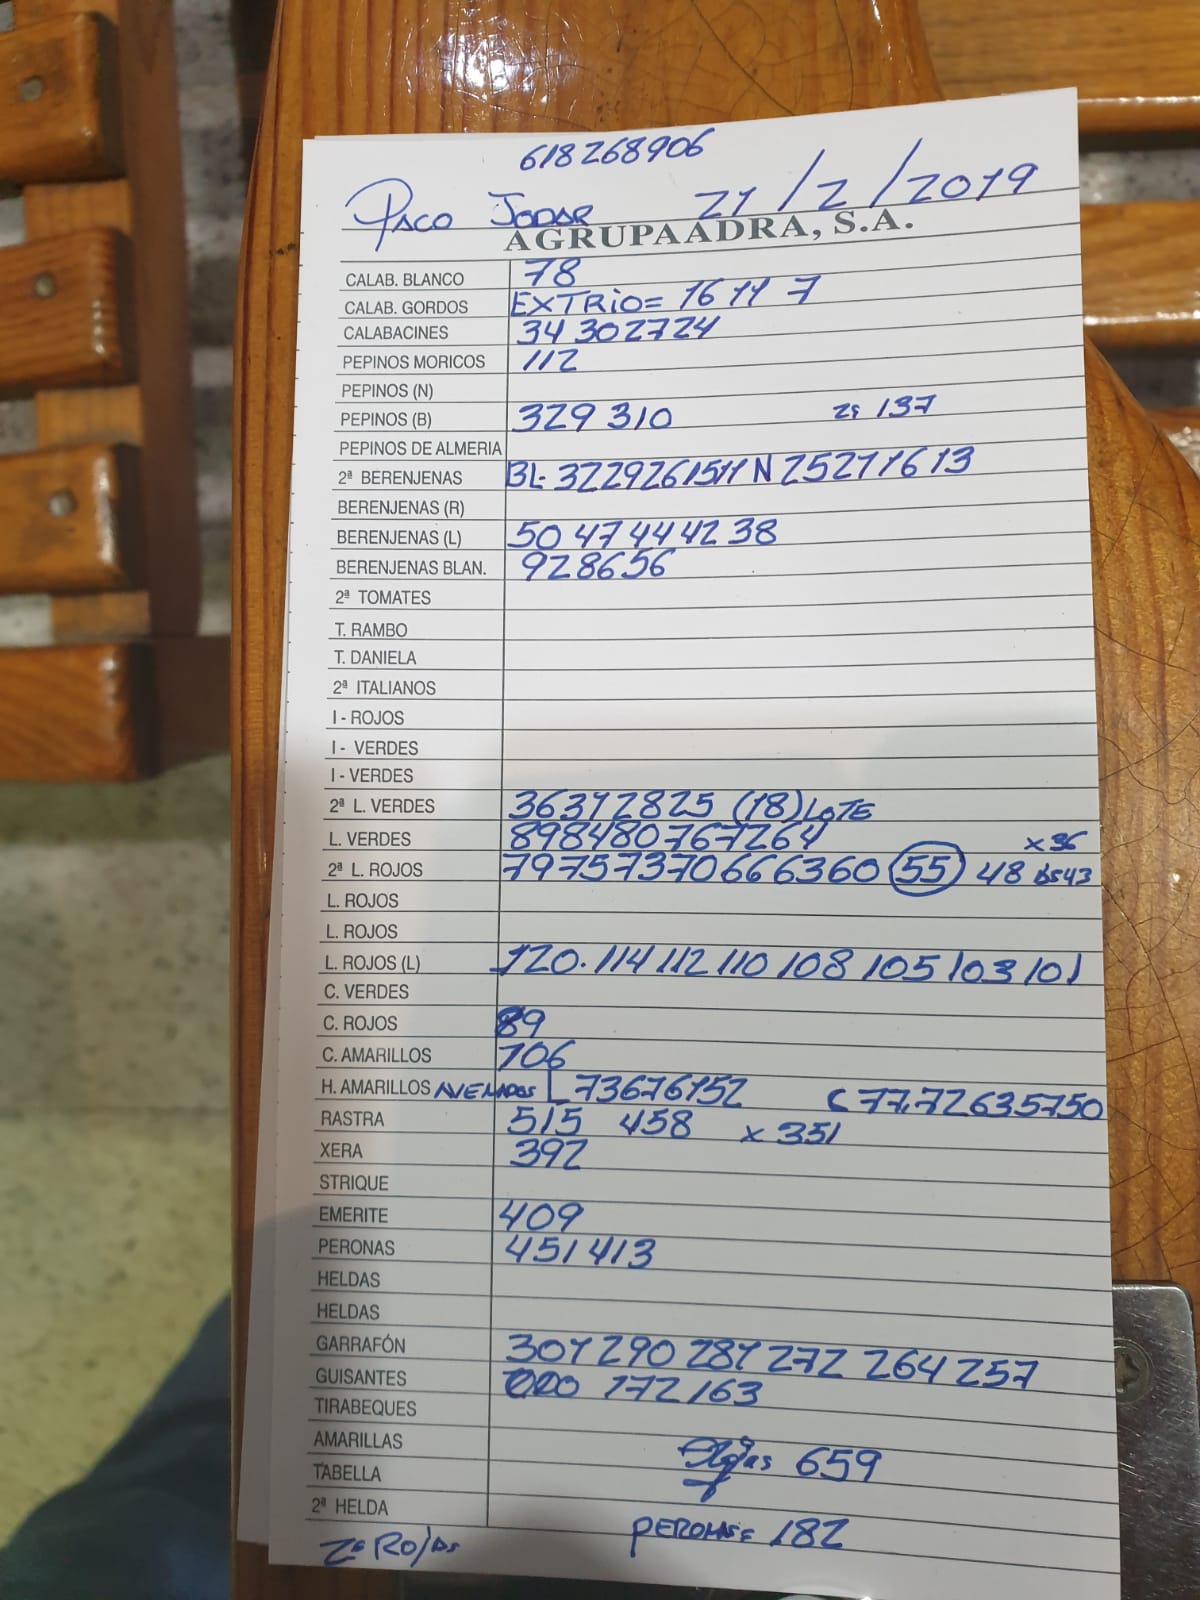 618268906
Paco Jodar 21/2/2019
AGRUPAADRA, S.A.
CALAB. BLANCO 78
CALAB. GORDOS EXTRIO= 16 11 7
CALABACINES 34 30 27 24
PEPINOS MORICOS 112
PEPINOS (N)
PEPINOS (B) 329 310 2ª 137
PEPINOS DE ALMERIA
2ª BERENJENAS BL. 32 29 26 15 11 N 25 21 16 13
BERENJENAS (R)
BERENJENAS (L) 50 47 44 42 38
BERENJENAS BLAN. 92 86 56
2ª TOMATES
T. RAMBO
T. DANIELA
2ª ITALIANOS
I - ROJOS
I - VERDES
I - VERDES
2ª L. VERDES 36 31 28 25 (18) LOTE
L. VERDES 89 84 80 76 72 64 x 36
2ª L. ROJOS 79 75 73 70 66 63 60 (55) 48 43
L. ROJOS
L. ROJOS
L. ROJOS (L) 120. 114 112 110 108 105 103 101
C. VERDES
C. ROJOS 89
C. AMARILLOS 106
H. AMARILLOS L 73 67 61 52 C 77, 72 63 57 50
RASTRA 515 458 x 351
XERA 392
STRIQUE
EMERITE 409
PERONAS 451 413
HELDAS
HELDAS
GARRAFÓN 301 290 281 272 264 257
GUISANTES 172 163
TIRABEQUES
AMARILLAS
659
TABELLA
2ª HELDA
PERONAS= 182
2ª Rojas